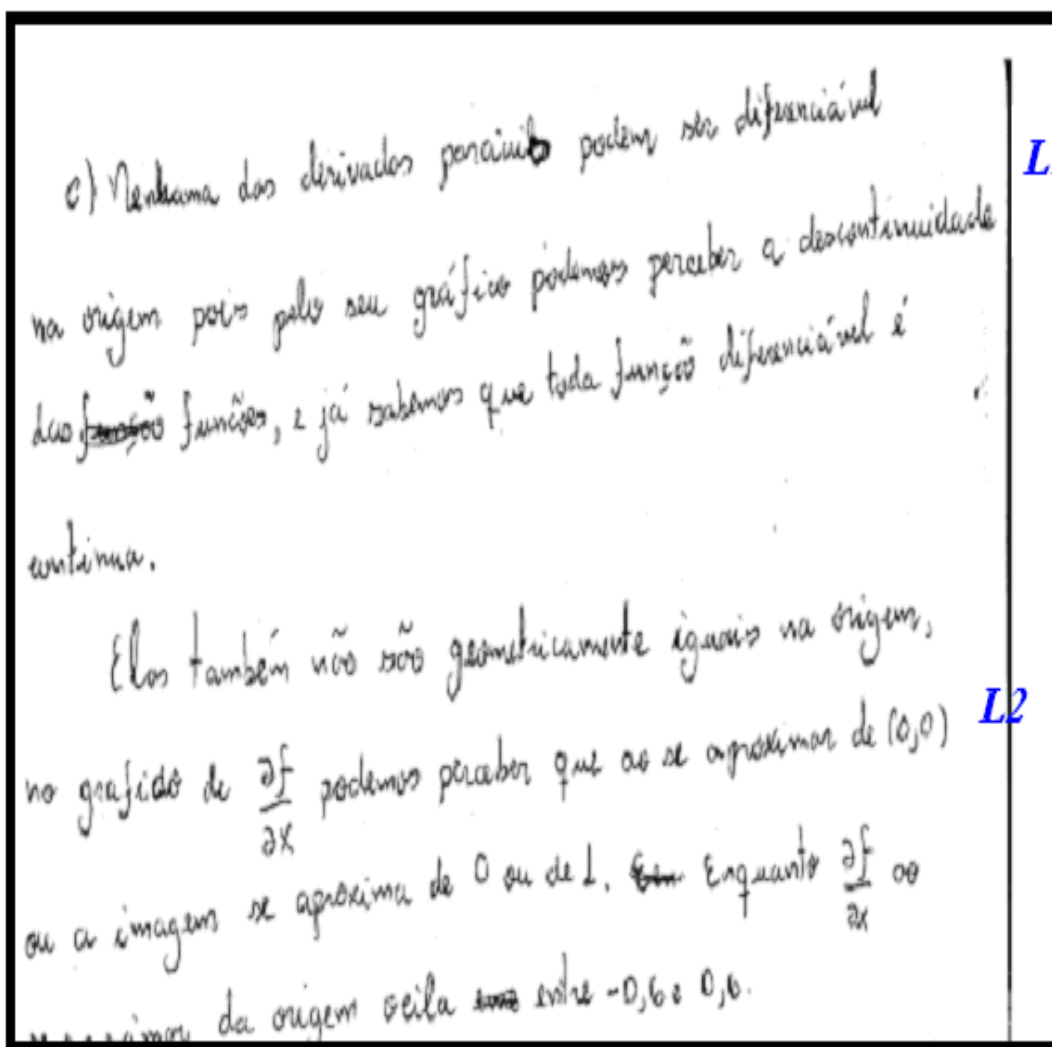 c) Nenhuma das derivadas parciais podem ser diferenciável L
na origem pois pelo seu gráfico podemos perceber a descontinuidade
das função funções, e já sabemos que toda função diferenciável é
contínua.
Elas também não são geometricamente iguais na origem, L2
no grafido de ∂f/∂x podemos perceber que ao se aproximar de (0,0)
ou a imagem se aproxima de 0 ou de 1. Enquanto ∂f/∂x ao
da origem ocila entre -0,6 e 0,6.